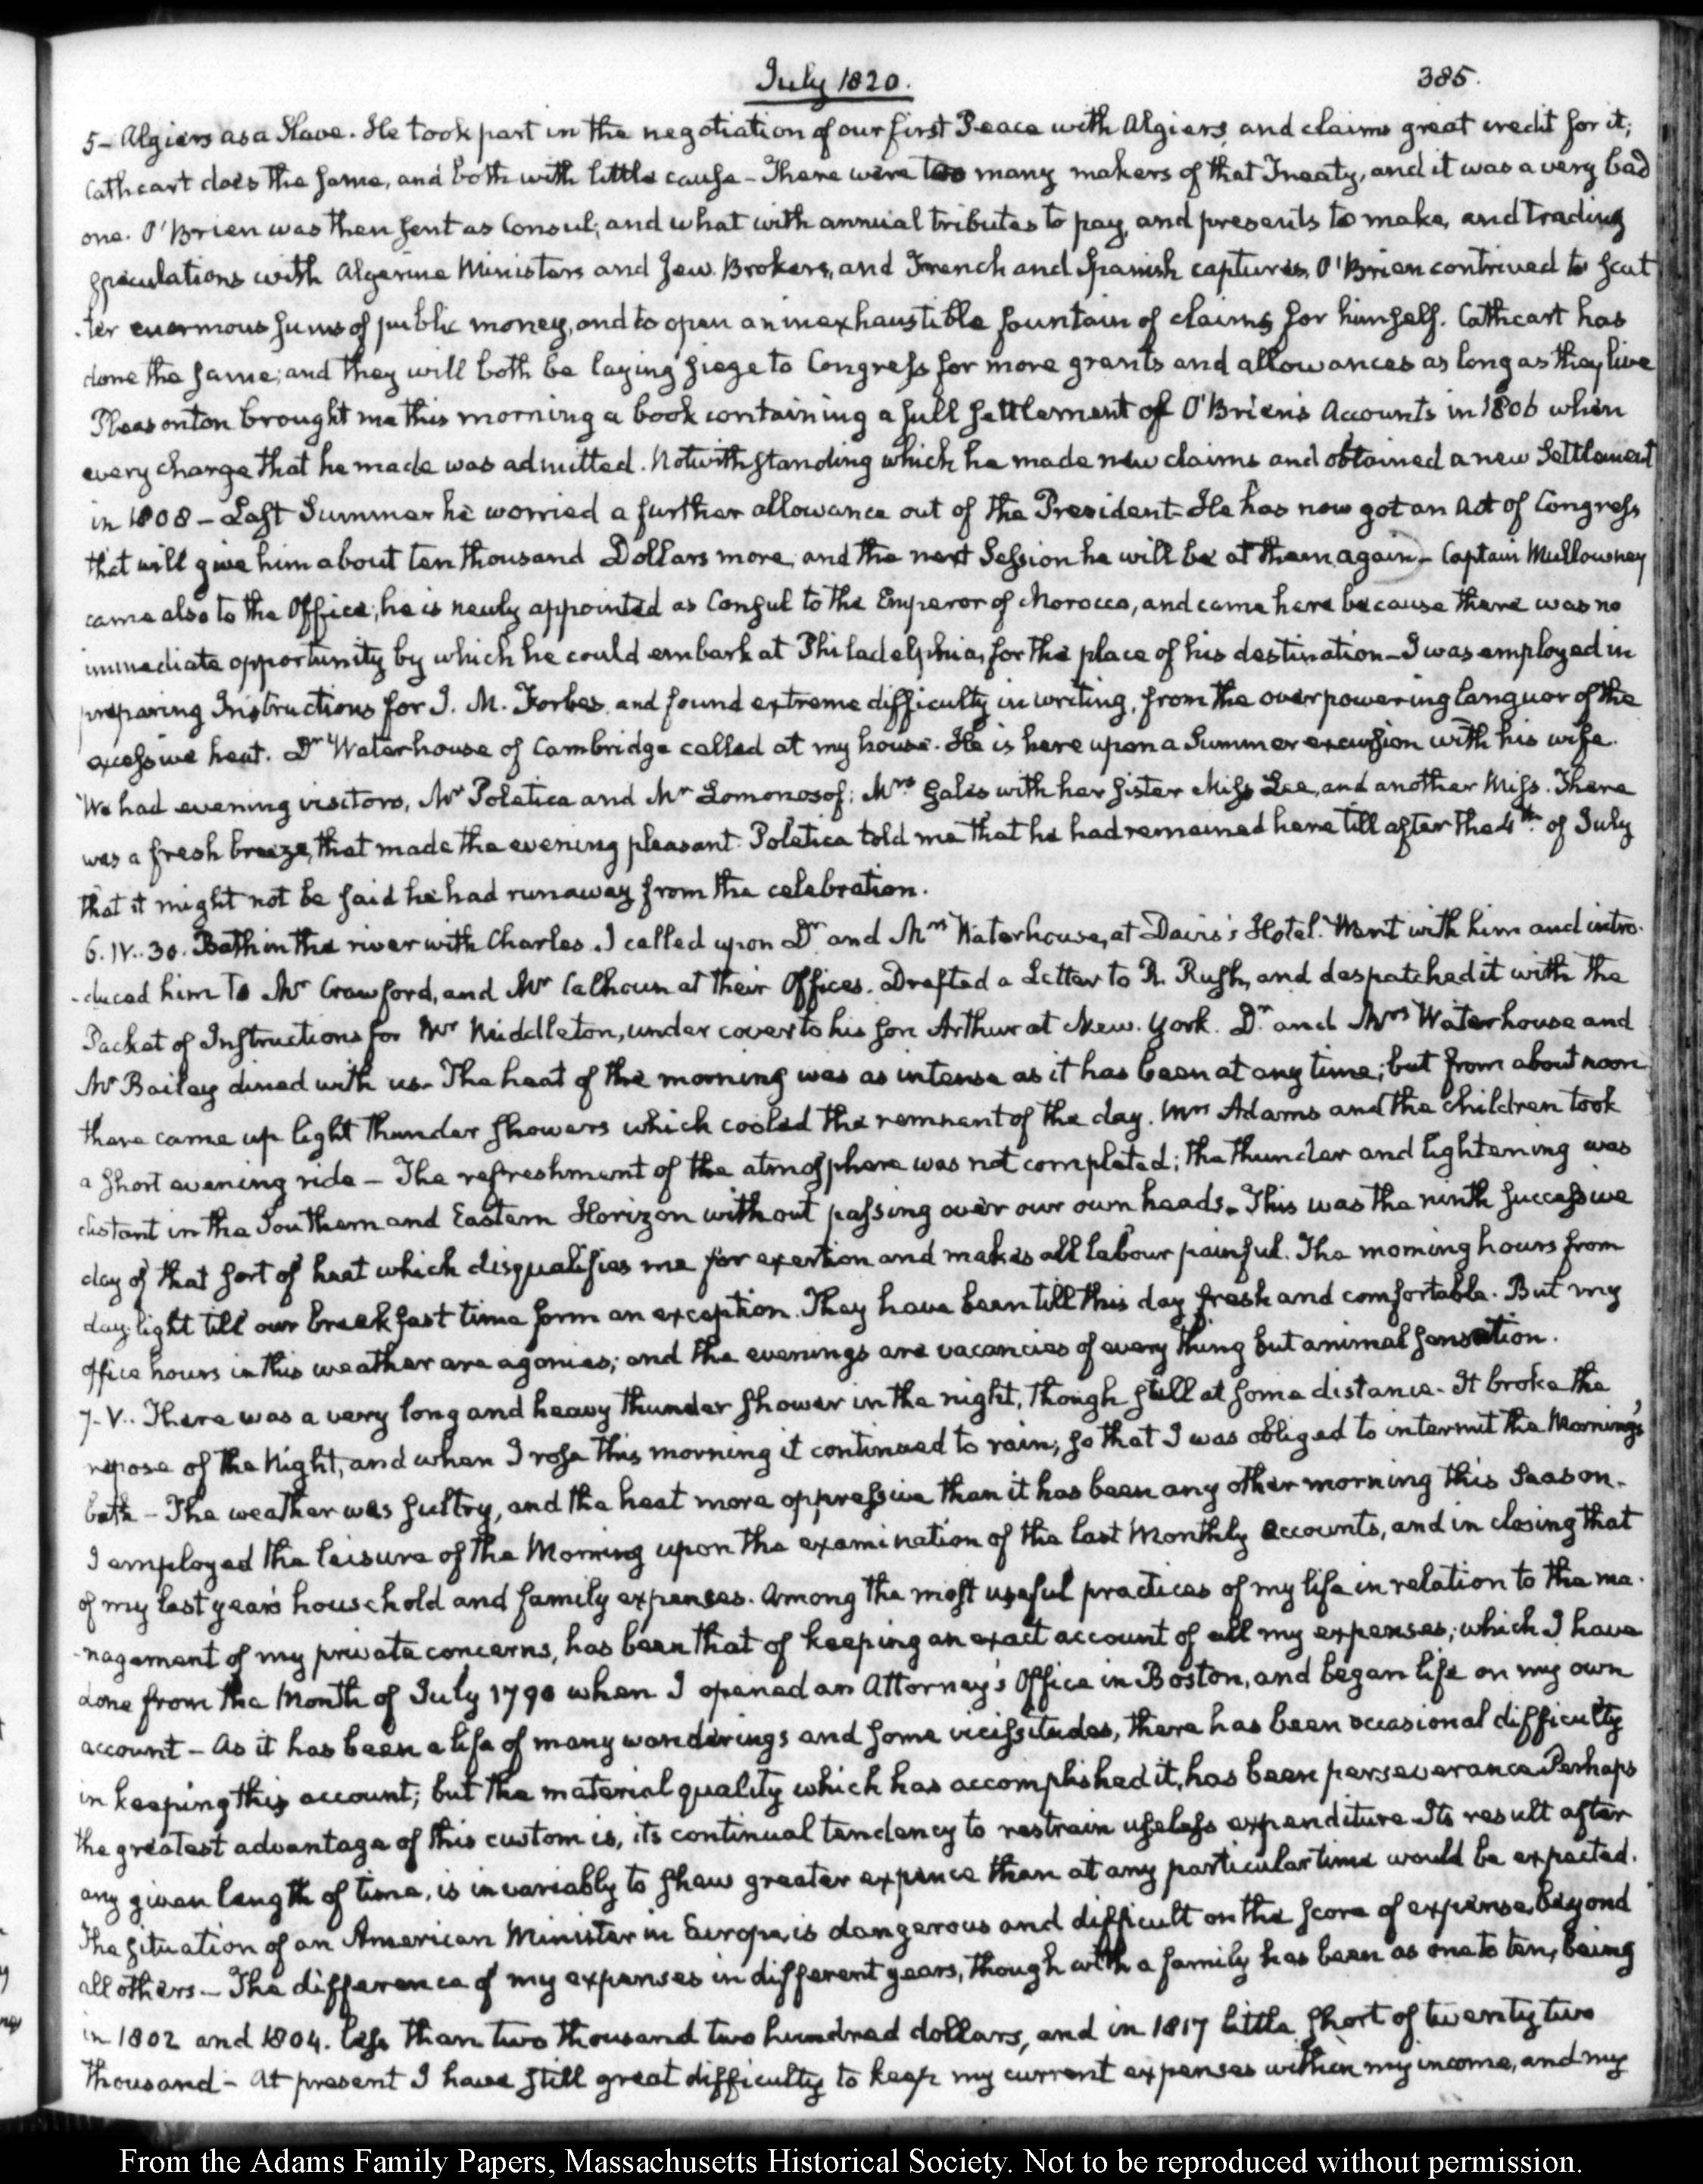 July 1820.
385.
5- Algiers as a Slave. He took part in the negotiation of our first Peace with Algiers, and claims great credit for it;
Cathcart does the same, and both with little cause - There were too many makers of that Treaty, and it was a very bad
one. O'Brien was then sent as Consul; and what with annual tributes to pay, and presents to make, and trading
speculations with Algerine Ministers and Jew Brokers, and French and Spanish captures, O'Brien contrived to scat
-ter enormous sums of public money, and to open an inexhaustible fountain of claims for himself. Cathcart has
done the same; and they will both be laying siege to Congress for more grants and allowances as long as they live
Pleasonton brought me this morning a book containing a full settlement of O'Brien's Accounts in 1806 when
every charge that he made was admitted. Notwithstanding which he made new claims and obtained a new Settlement
in 1808 - Last Summer he worried a further allowance out of the President - He has now got an Act of Congress
that will give him about ten thousand Dollars more, and the next Session he will be at them again - Captain Mullowney
came also to the Office; he is newly appointed as Consul to the Emperor of Morocco, and came here because there was no
immediate opportunity by which he could embark at Philadelphia, for the place of his destination - I was employed in
preparing Instructions for J. M. Forbes, and found extreme difficulty in writing, from the overpowering languor of the
excessive heat. Dr Waterhouse of Cambridge called at my house. He is here upon a Summer excursion with his wife.
We had evening visitors, Mr Poletica and Mr Lomonosof; Mrs Gales with her sister Miss Lee, and another Miss. There
was a fresh breeze, that made the evening pleasant. Poletica told me that he had remained here till after the 4th of July
that it might not be said he had runaway from the celebration.
6. IV..30. Bath in the river with Charles. I called upon Dr and Mrs Waterhouse, at Davis's Hotel. Went with him and intro-
-duced him to Mr Crawford, and Mr Calhoun at their Offices. Drafted a Letter to R. Rush, and despatched it with the
Packet of Instructions for Mr Middleton, under cover to his son Arthur at New-York. Dr and Mrs Waterhouse and
Mr Bailey dined with us. The heat of the morning was as intense as it has been at any time; but from about noon
there came up light thunder showers which cooled the remnant of the day. Mrs Adams and the children took
a short evening ride - The refreshment of the atmosphere was not completed; the thunder and lightening was
distant in the Southern and Eastern Horizon without passing over our own heads. This was the ninth successive
day of that sort of heat which disqualifies me for exertion and makes all labour painful. The morning hours from
day-light till our breakfast time form an exception. They have been till this day fresh and comfortable. But my
office hours in this weather are agonies; and the evenings are vacancies of every thing but animal sensation.
7- V.. There was a very long and heavy thunder shower in the night, though still at some distance - It broke the
repose of the Night, and when I rose this morning it continued to rain; so that I was obliged to intermit the Morning's
bath - The weather was sultry, and the heat more oppressive than it has been any other morning this Season.
I employed the leisure of the Morning upon the examination of the last Monthly accounts, and in closing that
of my last year's household and family expenses. Among the most useful practices of my life in relation to the ma-
-nagement of my private concerns, has been that of keeping an exact account of all my expenses; which I have
done from the Month of July 1790 when I opened an Attorney's Office in Boston, and began life on my own
account - As it has been a life of many wanderings and some vicissitudes, there has been occasional difficulty
in keeping this account; but the material quality which has accomplished it, has been perseverance. Perhaps
the greatest advantage of this custom is, its continual tendency to restrain useless expenditure. Its result after
any given length of time, is invariably to shew greater expence than at any particular time would be expected.
The situation of an American Minister in Europe, is dangerous and difficult on the score of expense, beyond
all others - The difference of my expenses in different years, though with a family has been as one to ten, being
in 1802 and 1804. less than two thousand two hundred dollars, and in 1817 little short of twenty two
thousand - At present I have still great difficulty to keep my current expenses within my income, and my
From the Adams Family Papers, Massachusetts Historical Society. Not to be reproduced without permission.